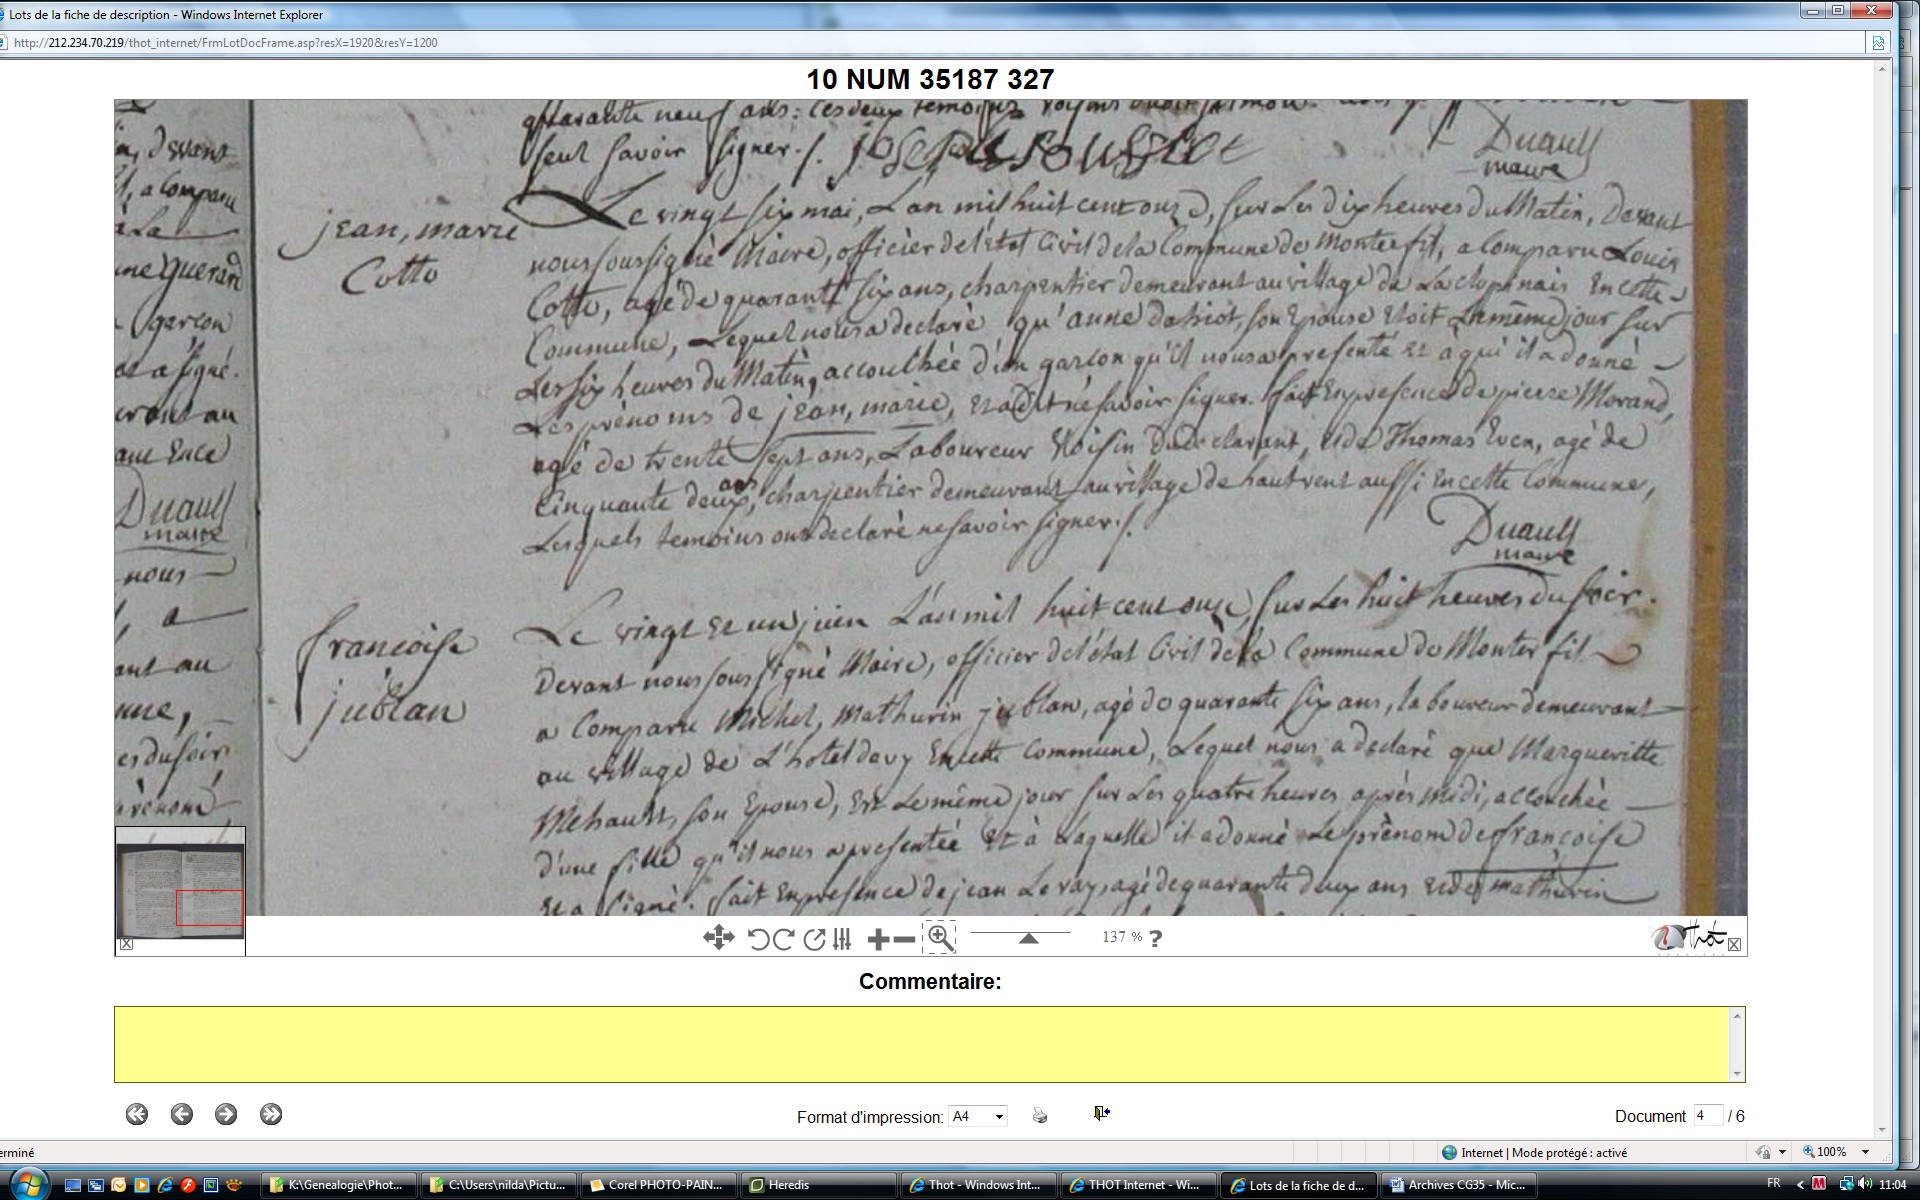 Lots de la fiche de description - Windows Internet Explorer
http://212.234.70.219/thot_internet/FrmLotDocFrame.asp?resX=1920&resY=1200
10 NUM 35187 327
quarante neuf ans: ces deux temoins
seul savoir signer ./.
Duault
maire
jean, marie
Cotto
Le vingt six mai, L'an mil huit cent onze, sur Les dix heures du Matin, Devant
nous soussigné Maire, officier de l'état Civil de la Commune de Monterfil, a Comparu Louis
Cotto, agé de quarante six ans, charpentier demeurant au village de La clopinais En cette
Commune, Lequel nous a declaré qu'anne dahiot, son Epouse Etoit Le même jour sur
Les six heures du Matin, accouchée d'un garçon qu'il nous a presenté Et à qui il a donné
Les prénoms de jean, marie, Et a dit ne savoir signer. fait En presence de pierre Morand,
agé de trente sept ans, Laboureur Voisin du declarant, Et de Thomas Even, agé de
Cinquante deux ans, charpentier demeurant au village de hautvent aussi En cette Commune,
Lesquels temoins ont declaré ne savoir signer ./.
Duault
maire
françoise
jublan
Le vingt Et un juin L'an mil huit cent onze, sur Les huit heures du soir.
Devant nous soussigné Maire, officier de l'état Civil de la Commune de Monterfil
a Comparu Michel, Mathurin jublan, agé de quarante six ans, laboureur demeurant
au village de L'hotel davy En cette Commune, Lequel nous a declaré que Margueritte
Mehault, son Epouse, Est Le même jour sur Les quatre heures après midi, accouchée
d'une fille qu'il nous a presentée Et à Laquelle il a donné Le prénom de françoise
Et a signé. fait En presence de jean Le ray, agé de quarante deux ans Et de mathurin
, devant
, a comparu
à La
me querard
garçon
et a signé.
Duault
maire
nous
, a
ant au
une,
es du soir
prénom
137 %
?
Thot
Commentaire:
Format d'impression: A4
Document 4 / 6
erminé
Internet | Mode protégé : activé
100%
K:\Genealogie\Phot...
C:\Users\nilda\Pictu...
Corel PHOTO-PAIN...
Heredis
Thot - Windows Int...
THOT Internet - Wi...
Lots de la fiche de d...
Archives CG35 - Mic...
FR
11:04